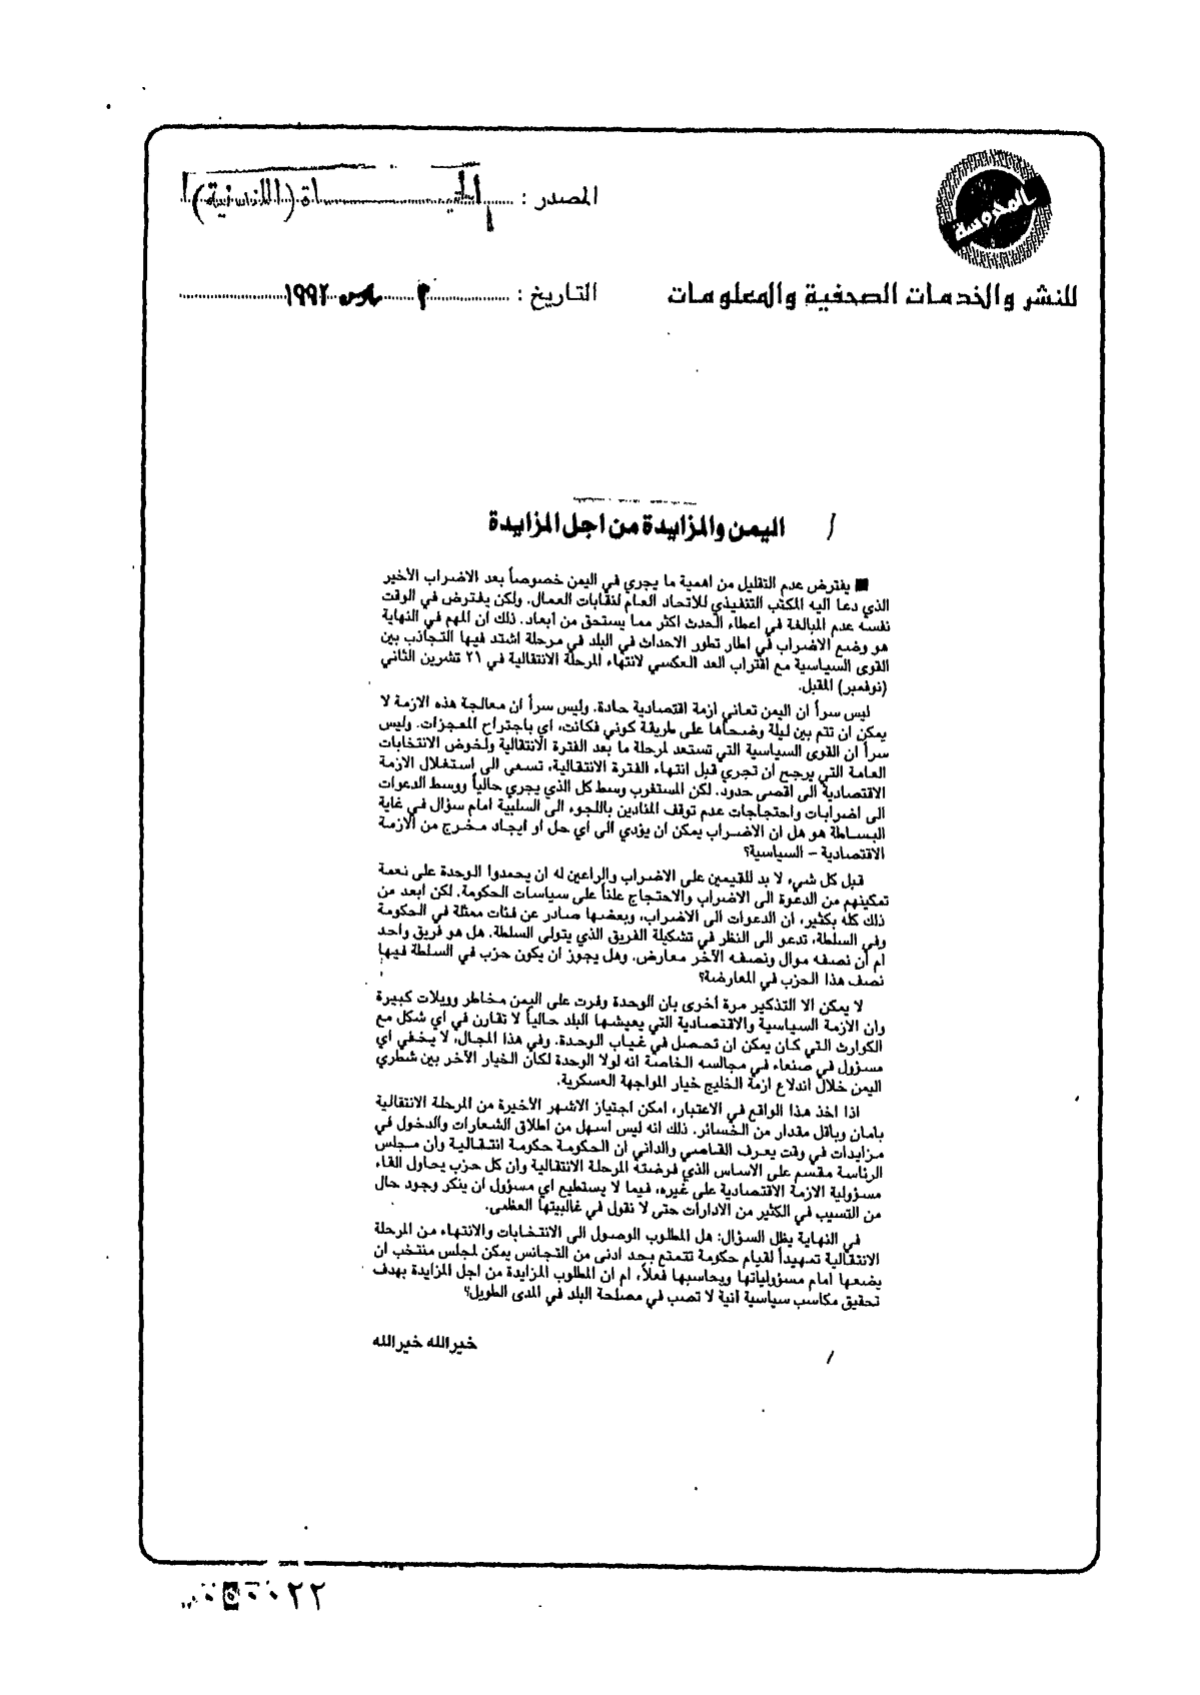 المحروسة
للنشر والخدمات الصحفية والمعلومات
المصدر : الحيـاة (اللندنية)
التاريخ : ٣ مارس ١٩٩٢
اليمن والمزايدة من اجل المزايدة
■ يفترض عدم التقليل من اهمية ما يجري في اليمن خصوصاً بعد الاضراب الأخير
الذي دعا اليه المكتب التنفيذي للاتحاد العام لنقابات العمال. ولكن يفترض في الوقت
نفسه عدم المبالغة في اعطاء الحدث اكثر مما يستحق من أبعاد. ذلك ان المهم في النهاية
هو وضع الاضراب في اطار تطور الاحداث في البلد في مرحلة اشتد فيها التجاذب بين
القوى السياسية مع اقتراب العد العكسي لانتهاء المرحلة الانتقالية في ٢١ تشرين الثاني
(نوفمبر) المقبل.
ليس سرأ ان اليمن تعاني ازمة اقتصادية حادة. وليس سرأ ان معالجة هذه الازمة لا
يمكن ان تتم بين ليلة وضحاها على طريقة كوني فكانت، اي باجتراح المعجزات. وليس
سرأ ان القوى السياسية التي تستعد لمرحلة ما بعد الفترة الانتقالية ولخوض الانتخابات
العامة التي يرجح ان تجري قبل انتهاء الفترة الانتقالية، تسعى الى استغلال الازمة
الاقتصادية الى اقصى حدود. لكن المستغرب وسط كل الذي يجري حالياً ووسط الدعوات
الى اضرابات واحتجاجات عدم توقف المنادين باللجوء الى السلبية امام سؤال في غاية
البساطة هو هل ان الاضراب يمكن ان يؤدي الى اي حل او ايجاد مخرج من الازمة
الاقتصادية - السياسية؟
قبل كل شيء لا بد للقيمين على الاضراب والراعين له ان يحمدوا الوحدة على نعمة
تمكينهم من الدعوة الى الاضراب والاحتجاج علناً على سياسات الحكومة. لكن ابعد من
ذلك كله بكثير، ان الدعوات الى الاضراب، وبعضها صادر عن فئات ممثلة في الحكومة
وفي السلطة، تدعو الى النظر في تشكيلة الفريق الذي يتولى السلطة. هل هو فريق واحد
ام ان نصفه موال ونصفه الآخر معارض. وهل يجوز ان يكون حزب في السلطة فيها
نصف هذا الحزب في المعارضة؟
لا يمكن الا التذكير مرة أخرى بان الوحدة وفرت على اليمن مخاطر وويلات كبيرة
وان الازمة السياسية والاقتصادية التي يعيشها البلد حالياً لا تقارن في اي شكل مع
الكوارث التي كان يمكن ان تحصل في غياب الوحدة. وفي هذا المجال، لا يخفي اي
مسؤول في صنعاء في مجالسه الخاصة انه لولا الوحدة لكان الخيار الآخر بين شطري
اليمن خلال اندلاع ازمة الخليج خيار المواجهة العسكرية.
اذا اخذ هذا الواقع في الاعتبار، امكن اجتياز الاشهر الأخيرة من المرحلة الانتقالية
بامان وباقل مقدار من الخسائر. ذلك انه ليس اسهل من اطلاق الشعارات والدخول في
مزايدات في وقت يعرف القاصي والداني ان الحكومة حكومة انتقالية وان مجلس
الرئاسة مقسم على الاساس الذي فرضته المرحلة الانتقالية وان كل حزب يحاول القاء
مسؤولية الازمة الاقتصادية على غيره، فيما لا يستطيع اي مسؤول ان ينكر وجود حال
من التسيب في الكثير من الادارات حتى لا نقول في غالبيتها العظمى.
في النهاية يظل السؤال: هل المطلوب الوصول الى الانتخابات والانتهاء من المرحلة
الانتقالية تمهيداً لقيام حكومة تتمتع بحد ادنى من التجانس يمكن لمجلس منتخب ان
يضعها امام مسؤولياتها ويحاسبها فعلاً، ام ان المطلوب المزايدة من اجل المزايدة بهدف
تحقيق مكاسب سياسية آنية لا تصب في مصلحة البلد في المدى الطويل؟
خيرالله خيرالله